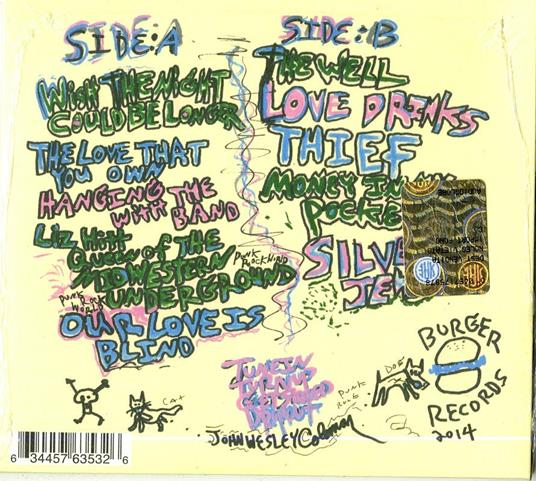 SIDE:A
WISH THE NIGHT
COULD BE LONGER
THE LOVE THAT
YOU OWN
HANGING
WITH THE
BAND
LIZ HITT
QUEEN OF THE
MIDWESTERN
UNDERGROUND
PUNK
ROCK NERD
PUNK ROCK
WORLD
OUR LOVE IS
BLIND
CAT
6 34457 63532 6
SIDE:B
THE WELL
LOVE DRINKS
THIEF
MONEY IN MY
POCKE
SILVE
JEW
TUNE IN
TURN UP
GET STONED
DROP OUT
JOHN WESLEY Coleman
PUNK
RULE
DOE
BURGER
RECORDS
2014